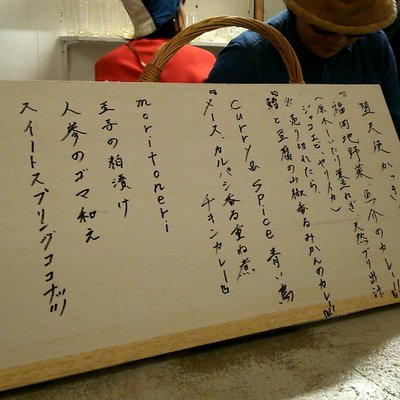 堕天使かっきー
『福岡地野菜魚介のカレー』
(原木しいたけ 葉玉ねぎ 天然ブリ出汁
ジャコエビ ヤリイカ)
※売り切れたら、
『鱈と豆腐の山椒香るみかんのカレー』
Curry & Spice 青い鳥
『メース、カルパシ香る重ね煮
チキンカレー』
moritoneri
王子の粕漬け
人参のゴマ和え
スイートスプリングココナッツ